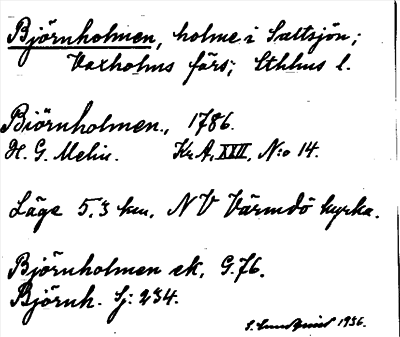 Björnholmen, holme i Saltsjön;
Vaxholms förs; Sthlms l.
Biörnholmen., 1786.
H. G. Melin. Kr A, XXII, N:o 14.
Läge 5,3 km. NV Värmdö kyrka.
Björnholmen ek. G.76.
Björnh. Sj: 234.
S. Lundqvist 1936.